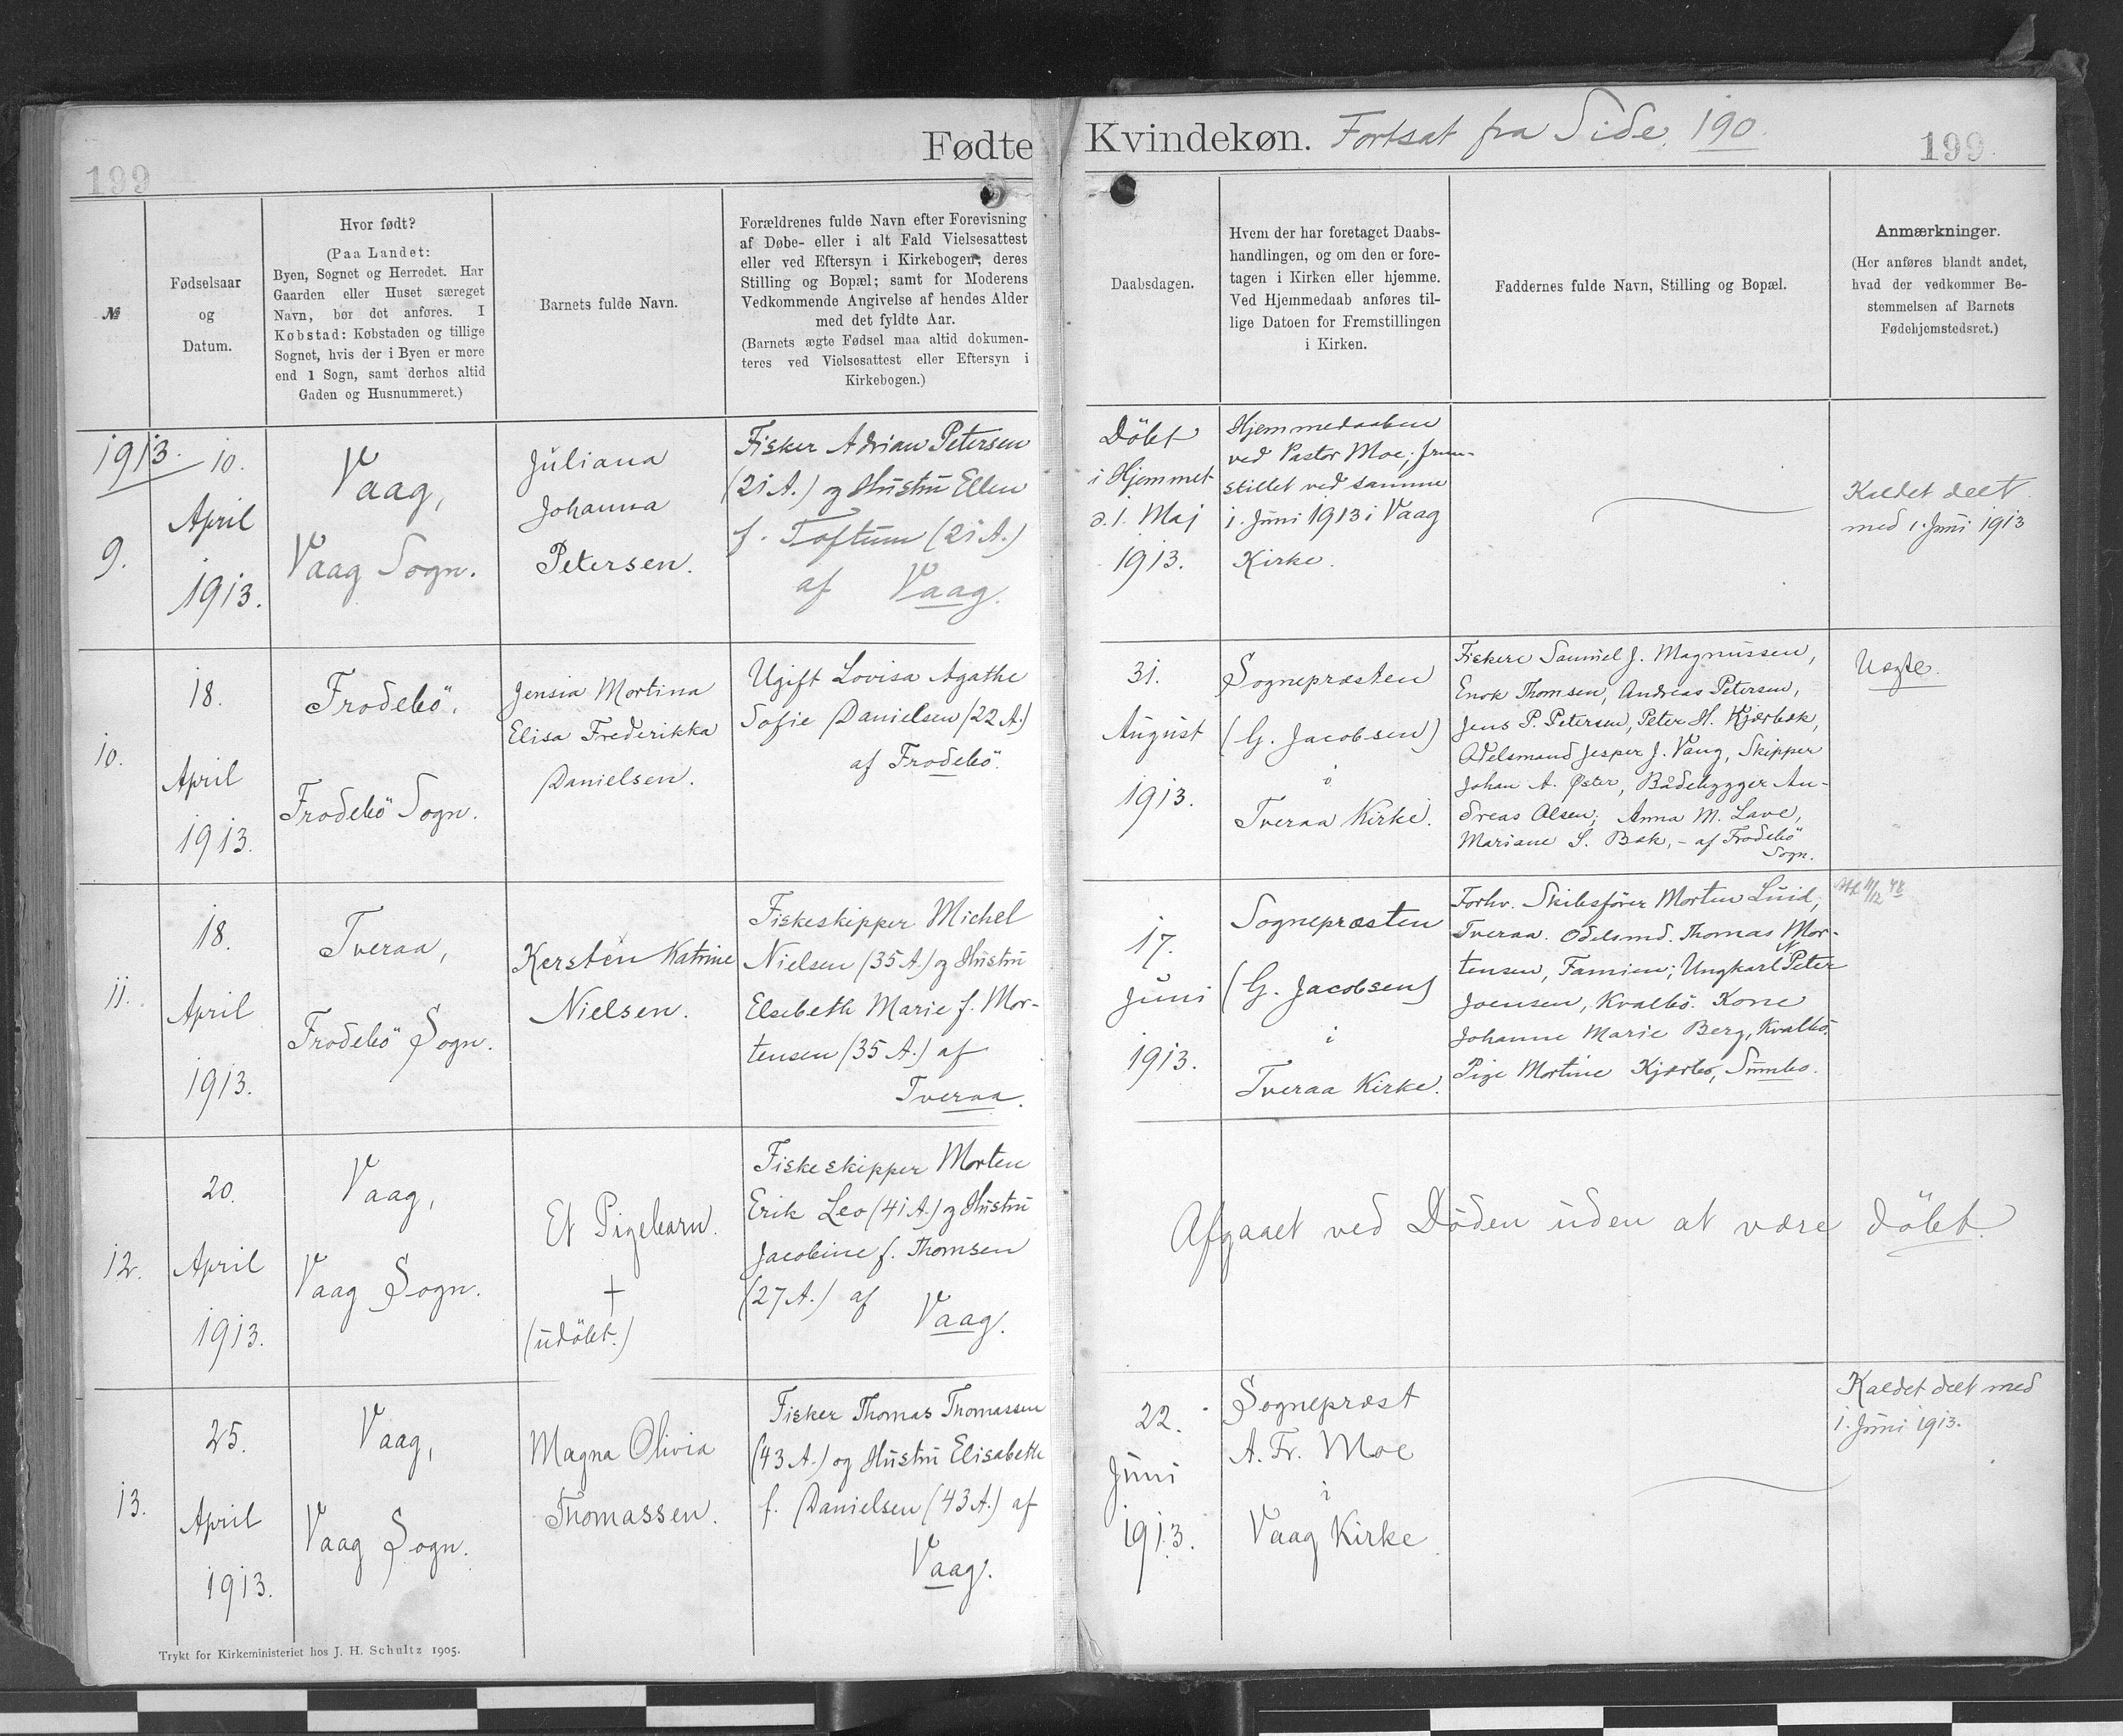 199
Fødte
Kvindekøn. Fortsat fra Side 190.
199
№
Fødselsaar
og
Datum.
Hvor født?
(Paa Landet:
Byen, Sognet og Herredet. Har
Gaarden eller Huset særeget
Navn, bør det anføres. I
Købstad: Købstaden og tillige
Sognet, hvis der i Byen er mere
end 1 Sogn, samt derhos altid
Gaden og Husnummeret.)
Barnets fulde Navn.
Forældrenes fulde Navn efter Forevisning
af Døbe- eller i alt Fald Vielsesattest
eller ved Eftersyn i Kirkebogen, deres
Stilling og Bopæl; samt for Moderens
Vedkommende Angivelse af hendes Alder
med det fyldte Aar.
(Barnets ægte Fødsel maa altid dokumen-
teres ved Vielsesattest eller Eftersyn i
Kirkebogen.)
Daabsdagen.
Hvem der har foretaget Daabs-
handlingen, og om den er fore-
tagen i Kirken eller hjemme.
Ved Hjemmedaab anføres til-
lige Datoen for Fremstillingen
i Kirken.
Faddernes fulde Navn, Stilling og Bopæl.
Anmærkninger.
(Her anføres blandt andet,
hvad der vedkommer Be-
stemmelsen af Barnets
Fødehjemstedsret.)
1913.
9.
10.
April
1913.
Vaag,
Vaag Sogn.
Juliana
Johanna
Petersen.
Fisker Adrian Petersen
(21 A.) og Hustru Ellen
f. Toftum (21 A.)
af Vaag.
Döbt
i Hjemmet
d. 1. Maj
1913.
Hjemmedaaben
ved Pastor Moe; frem-
stillet ved samme
1. Juni 1913 i Vaag
Kirke.
Kaldet delt
med 1. Juni 1913
10.
18.
April
1913.
Frodebö,
Frodebö Sogn.
Jensia Mortina
Elisa Frederikka
Danielsen.
Ugift Lovisa Agathe
Sofie Danielsen (22 A.)
af Frodebö.
31.
August
1913.
Sognepræsten
(G. Jacobsen)
i
Tveraa Kirke.
Fiskere Samuel J. Magnussen,
Enok Thomsen, Andreas Petersen,
Jens P. Petersen, Peter H. Kjærbæk,
Odelsmand Jesper J. Vang, Skipper
Johan A. Øster, Bådebygger An-
dreas Olsen; Anna M. Lave,
Mariane S. Bæk, - af Frodebö
Sogn.
Uægte.
11.
18.
April
1913.
Tveraa,
Frodebö Sogn.
Kersten Katrine
Nielsen.
Fiskeskipper Michel
Nielsen (35 A.) og Hustru
Elsebeth Marie f. Mor-
tensen (35 A.) af
Tveraa.
17.
Juni
1913.
Sognepræsten
(G. Jacobsen)
i
Tveraa Kirke.
Forhv. Skibsfører Morten Luid,
Tveraa. Odelsmd. Thomas Mor-
tensen, Famien; Ungkarl N. Peter
Joensen, Kvalbö. Kone
Johanne Marie Berg, Kvalbö.
Pige Mortine Kjærbo, Sumbö.
11/12 48
12.
20.
April
1913.
Vaag,
Vaag Sogn.
Et Pigebarn.
+
(udöbt.)
Fiskeskipper Morten
Erik Leo (41 A.) og Hustru
Jacobine f. Thomsen
(27 A.) af
Vaag.
Afgaaet ved Döden uden at være döbt.
13.
25.
April
1913.
Vaag,
Vaag Sogn.
Magna Olivia
Thomassen.
Fisker Thomas Thomassen
(43 A.) og Hustru Elisabeth
f. Danielsen (43 A.) af
Vaag.
22.
Juni
1913.
Sognepræst
A. Fr. Moe
i
Vaag Kirke
Kaldet delt med
1. Juni 1913.
Trykt for Kirkeministeriet hos J. H. Schultz 1905.